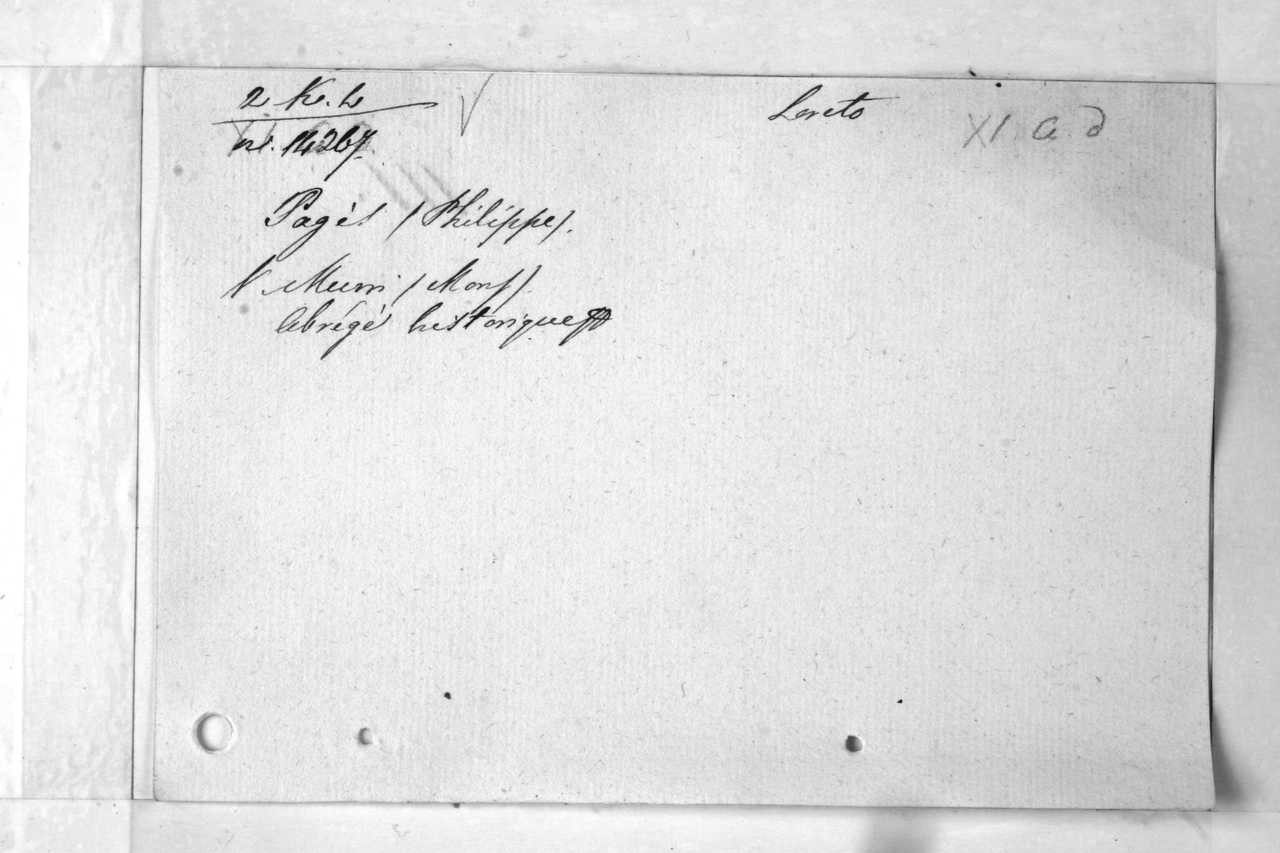 2 Ke. L
Loreto
XI a d
nr. 14267.
Pagès (Philippe).
V. Murri (Mons)
Abrégé historique